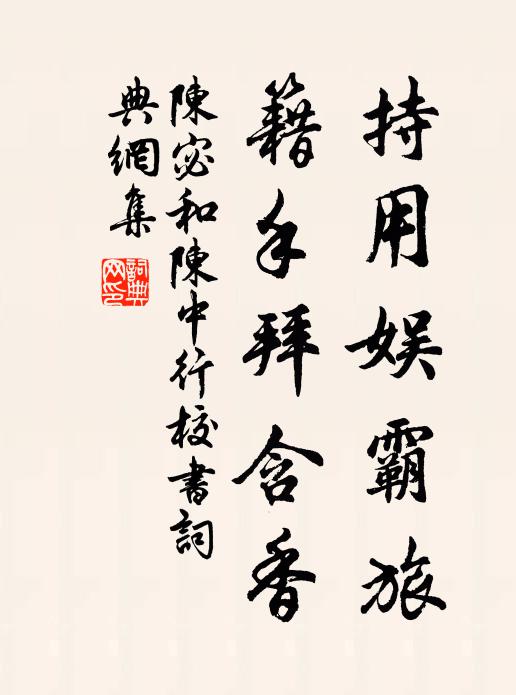 持用娛霸旅
籍手拜含香
陳宓和陳中行校書詞
典網集
詞典網印